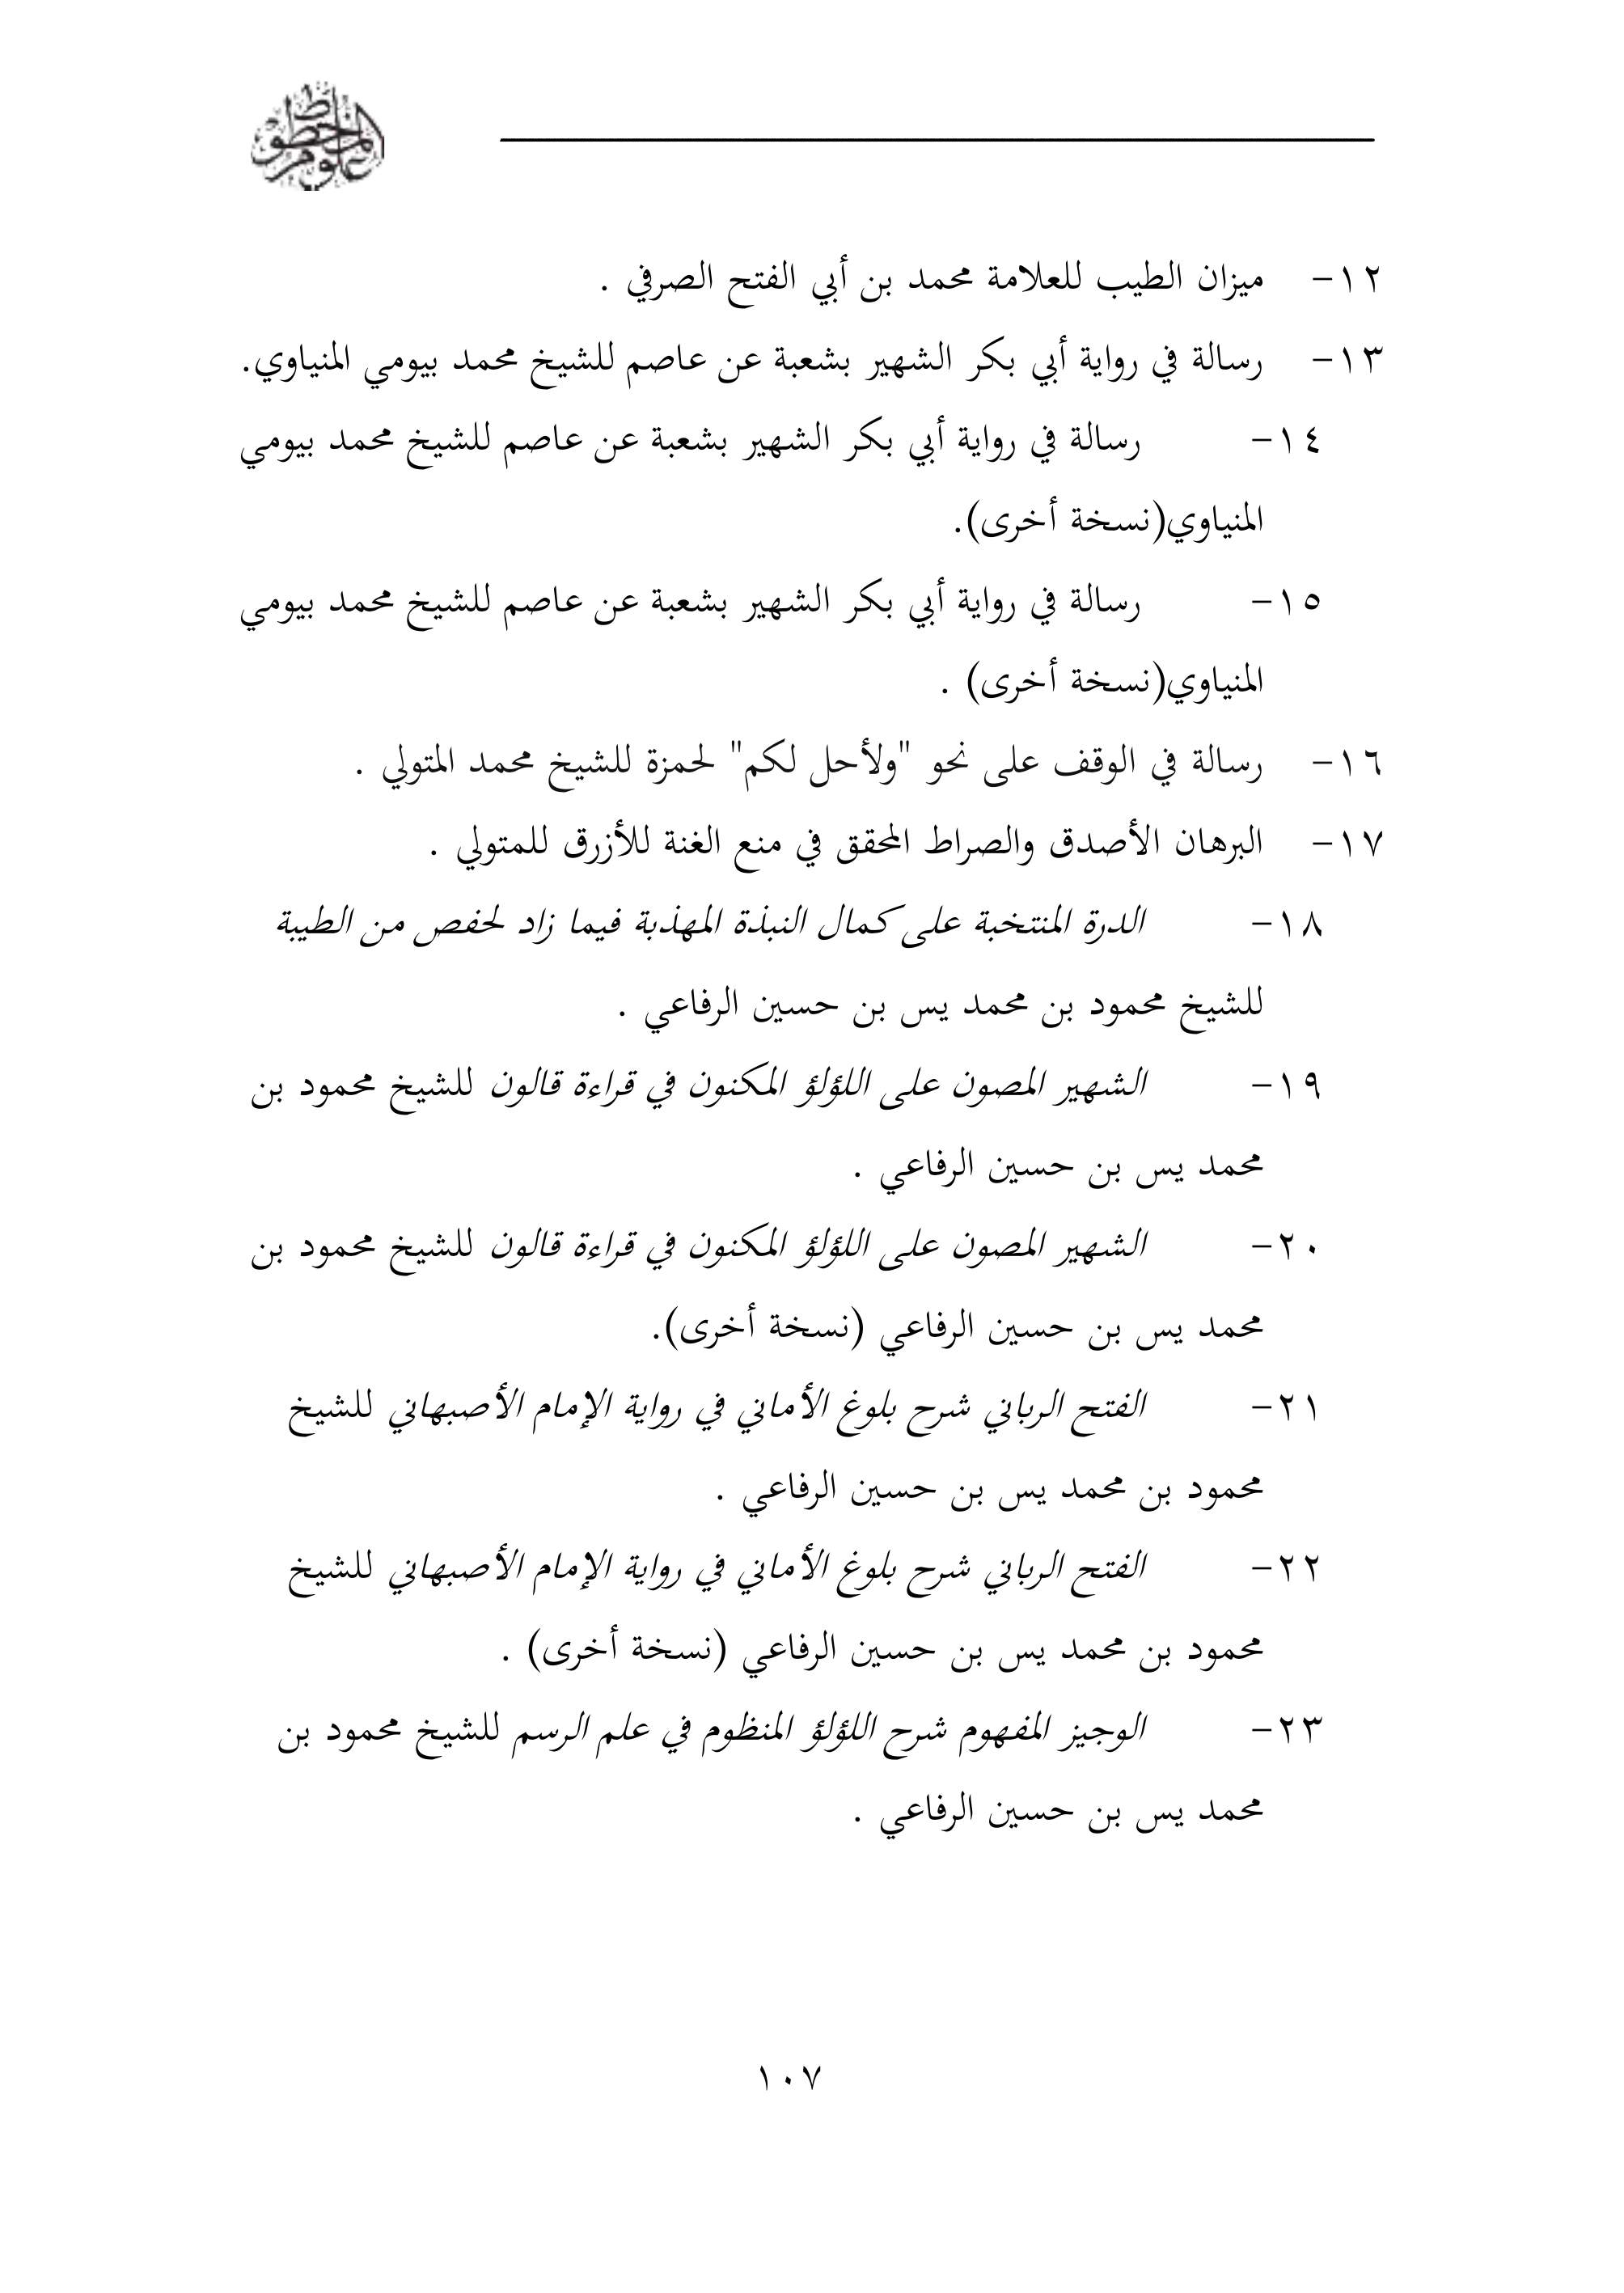 علوم المخطوط
١٢- ميزان الطيب للعلامة محمد بن أبي الفتح الصرفي .
١٣- رسالة في رواية أبي بكر الشهير بشعبة عن عاصم للشيخ محمد بيومي المنياوي.
١٤- رسالة في رواية أبي بكر الشهير بشعبة عن عاصم للشيخ محمد بيومي
المنياوي(نسخة أخرى).
١٥- رسالة في رواية أبي بكر الشهير بشعبة عن عاصم للشيخ محمد بيومي
المنياوي(نسخة أخرى) .
١٦- رسالة في الوقف على نحو "ولأحل لكم" لحمزة للشيخ محمد المتولي .
١٧- البرهان الأصدق والصراط المحقق في منع الغنة للأزرق للمتولي .
١٨- الدرة المنتخبة على كمال النبذة المهذبة فيما زاد لحفص من الطيبة
للشيخ محمود بن محمد يس بن حسين الرفاعي .
١٩- الشهير المصون على اللؤلؤ المكنون في قراءة قالون للشيخ محمود بن
محمد يس بن حسين الرفاعي .
٢٠- الشهير المصون على اللؤلؤ المكنون في قراءة قالون للشيخ محمود بن
محمد يس بن حسين الرفاعي (نسخة أخرى).
٢١- الفتح الرباني شرح بلوغ الأماني في رواية الإمام الأصبهاني للشيخ
محمود بن محمد يس بن حسين الرفاعي .
٢٢- الفتح الرباني شرح بلوغ الأماني في رواية الإمام الأصبهاني للشيخ
محمود بن محمد يس بن حسين الرفاعي (نسخة أخرى) .
٢٣- الوجيز المفهوم شرح اللؤلؤ المنظوم في علم الرسم للشيخ محمود بن
محمد يس بن حسين الرفاعي .
١٠٧